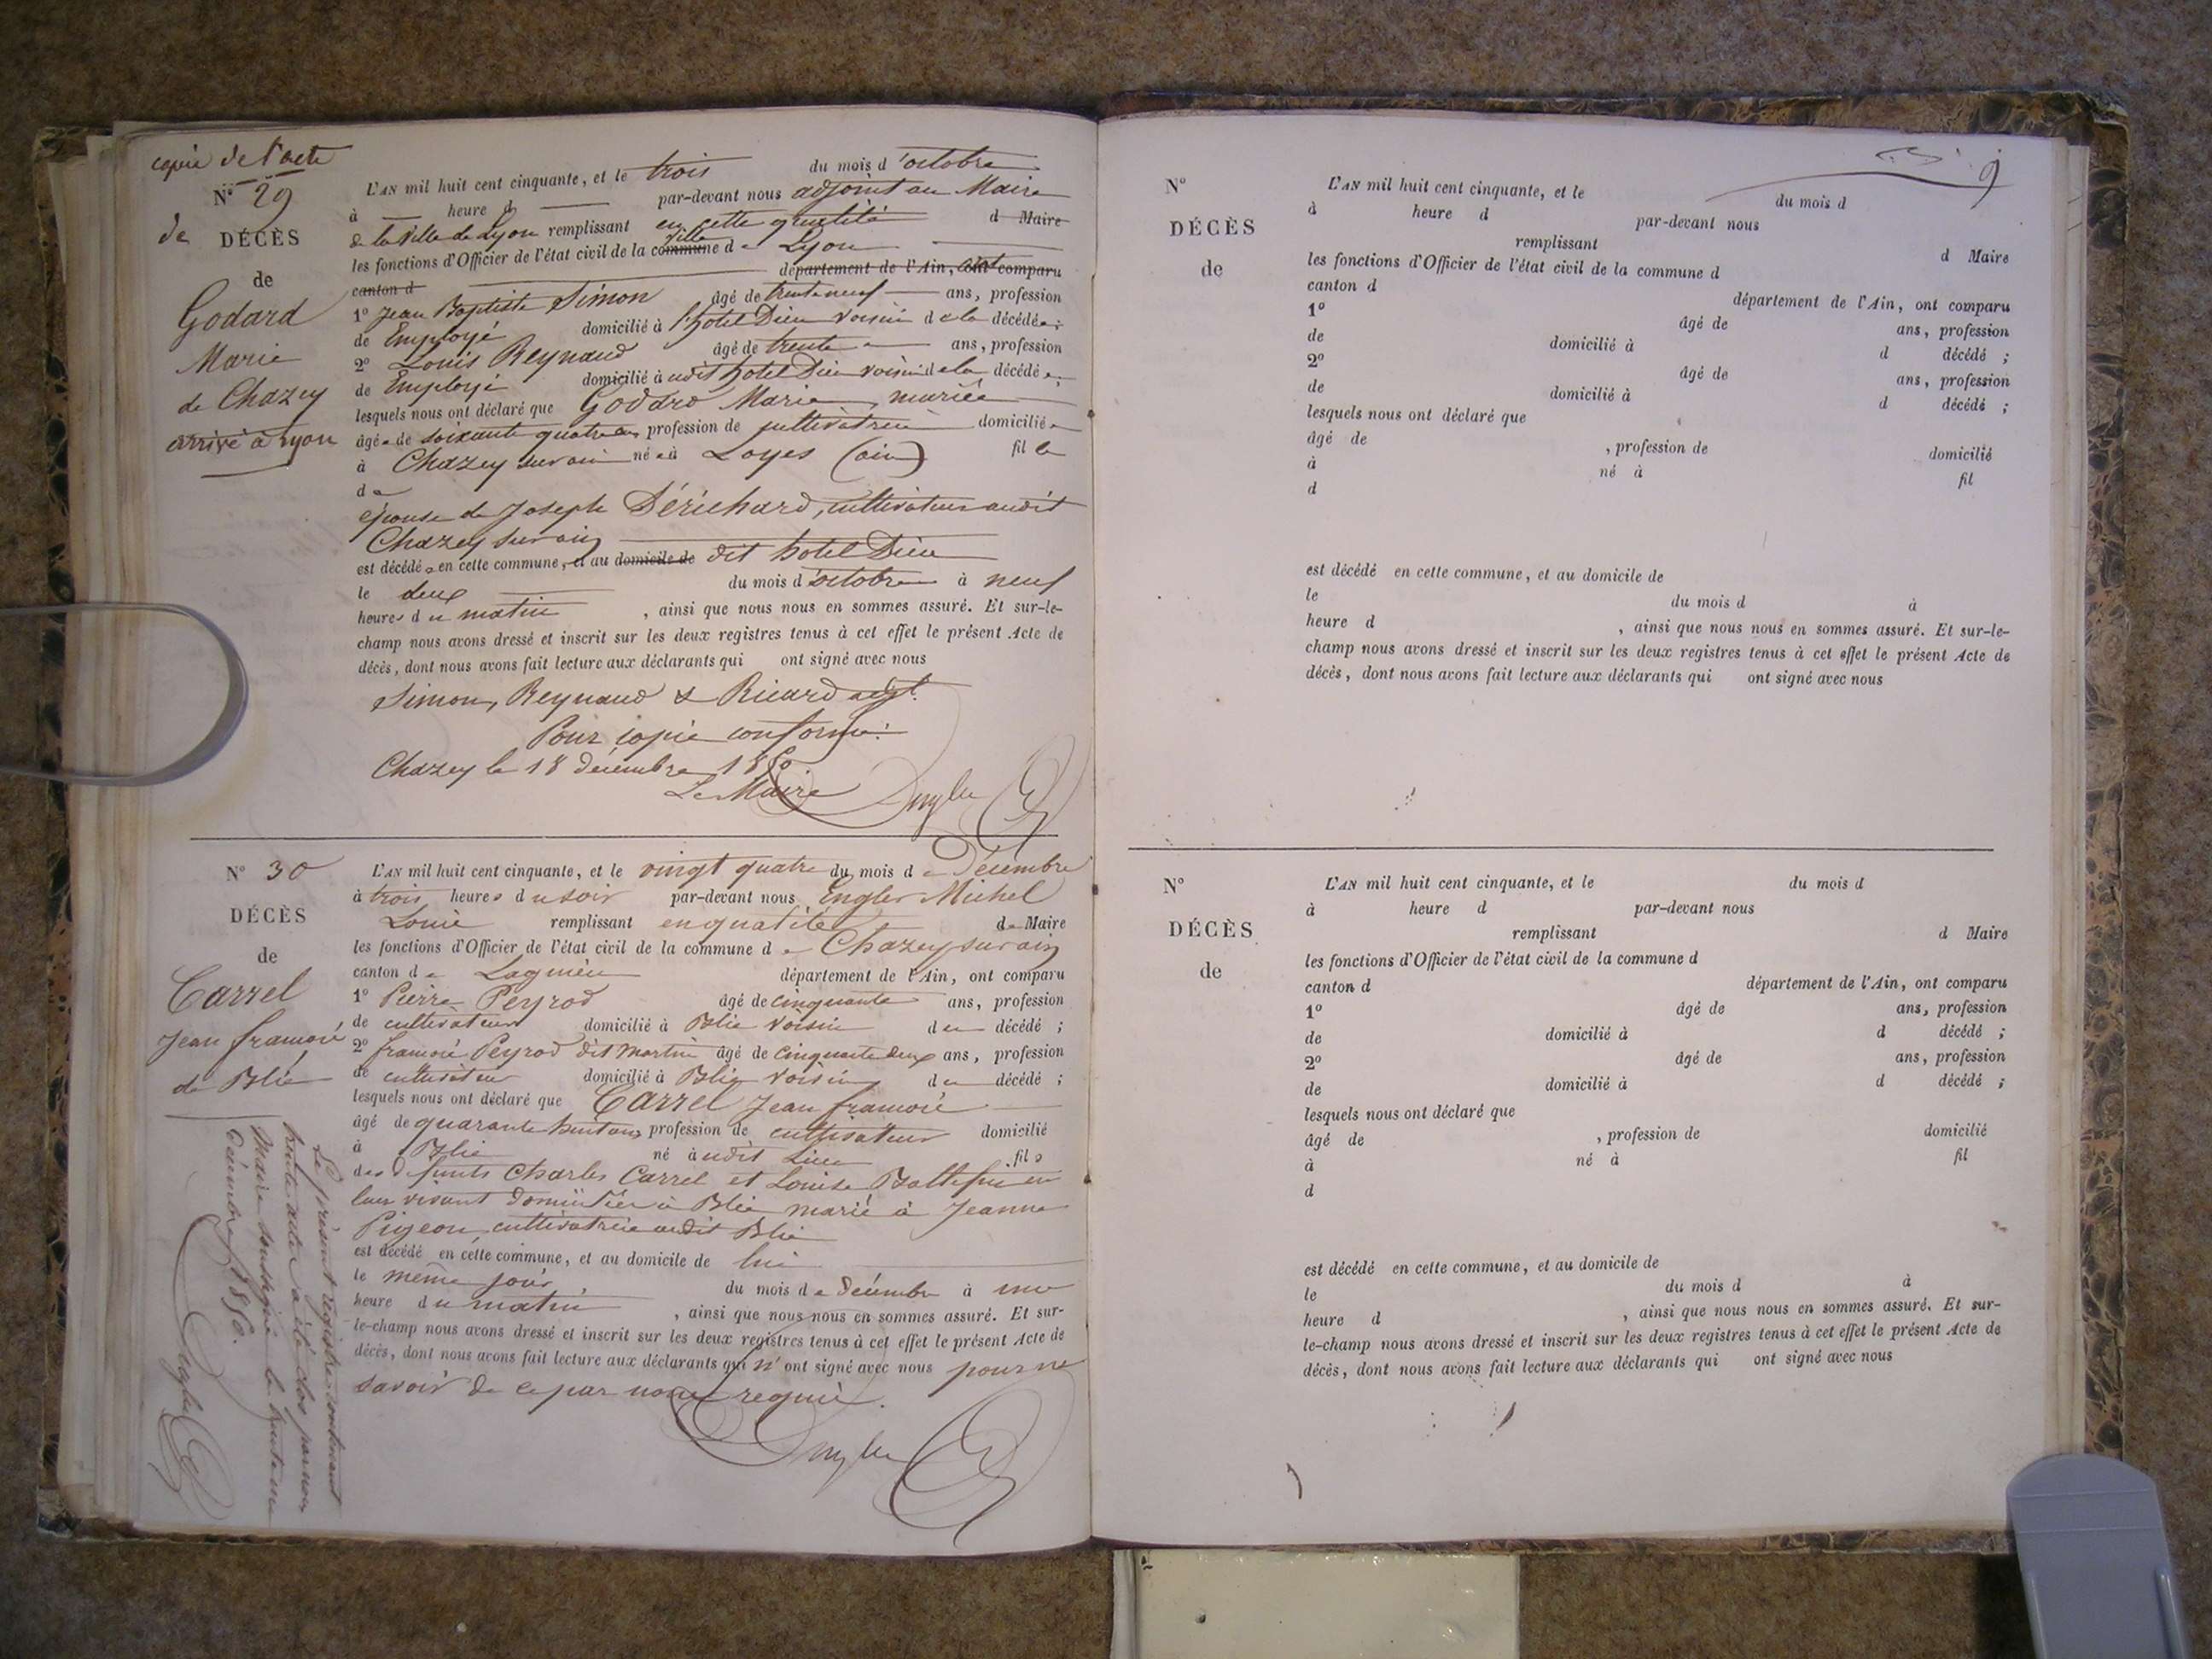 copie de l'acte
N° 29
de DÉCÈS
de
Godard
Marie
de Chazey
arrivé à Lyon
L'AN mil huit cent cinquante, et le trois du mois d'octobre
à heure d par-devant nous adjoint au Maire
de la ville de Lyon remplissant en cette qualité d Maire
les fonctions d'Officier de l'état civil de la commune ville de Lyon
canton d département de l'Ain, ont comparu
1° Jean Baptiste Simon âgé de trente neuf ans, profession
de Employé domicilié à l'hotel Dieu voisin de la décédée;
2° Louis Reynaud âgé de trente ans, profession
de Employé domicilié à udit hotel Dieu voisin de la décédée;
lesquels nous ont déclaré que Godard Marie, mariée
âgée de soixante quatre ans profession de cultivatrice domiciliée
à Chazey sur ain née à Loyes (ain) fille
de
épouse de Joseph Dérichard, cultivateur audit
Chazey sur ain
est décédée en cette commune, et au domicile de dit hotel Dieu
le deux du mois d'octobre à neuf
heures du matin, ainsi que nous nous en sommes assuré. Et sur-le-
champ nous avons dressé et inscrit sur les deux registres tenus à cet effet le présent Acte de
décès, dont nous avons fait lecture aux déclarants qui ont signé avec nous
Simon, Reynaud & Ricard adjt.
Pour copie conforme:
Chazey le 18 décembre 1850
Le Maire
Engler
N° 30
DÉCÈS
de
Carrel
Jean françois
de Blie
L'AN mil huit cent cinquante, et le vingt quatre du mois de Décembre
à trois heures du soir par-devant nous Engler Michel
Louis remplissant en qualité de Maire
les fonctions d'Officier de l'état civil de la commune de Chazey sur ain
canton de Lagnieu département de l'Ain, ont comparu
1° Pierre Peyrod âgé de cinquante ans, profession
de cultivateur domicilié à Blie voisin du décédé;
2° françois Peyrod dit Martin âgé de cinquante deux ans, profession
de cultivateur domicilié à Blie voisin du décédé;
lesquels nous ont déclaré que Carrel Jean françois
âgé de quarante huit ans profession de cultivateur domicilié
à Blie né audit Lieu fils
des défunts Charles Carrel et Louise en
leur vivant domiciliés à Blie marié à Jeanne
Pigeon, cultivatrice audit Blie
est décédé en cette commune, et au domicile de lui
le même jour du mois de décembre à une
heure du matin, ainsi que nous nous en sommes assuré. Et sur-
le-champ nous avons dressé et inscrit sur les deux registres tenus à cet effet le présent Acte de
décès, dont nous avons fait lecture aux déclarants qui n'ont signé avec nous pour ne
savoir de ce par nous requis.
Engler
Le présent registre contenant
trente actes a été clos par nous
Maire soussigné le trente un
Décembre 1850.
Engler
9
N°
DÉCÈS
de
L'AN mil huit cent cinquante, et le du mois d
à heure d par-devant nous
remplissant d Maire
les fonctions d'Officier de l'état civil de la commune d
canton d département de l'Ain, ont comparu
1° âgé de ans, profession
de domicilié à d décédé;
2° âgé de ans, profession
de domicilié à d décédé;
lesquels nous ont déclaré que
âgé de , profession de domicilié
à né à fil
d
est décédé en cette commune, et au domicile de
le du mois d à
heure d , ainsi que nous nous en sommes assuré. Et sur-le-
champ nous avons dressé et inscrit sur les deux registres tenus à cet effet le présent Acte de
décès, dont nous avons fait lecture aux déclarants qui ont signé avec nous
N°
DÉCÈS
de
L'AN mil huit cent cinquante, et le du mois d
à heure d par-devant nous
remplissant d Maire
les fonctions d'Officier de l'état civil de la commune d
canton d département de l'Ain, ont comparu
1° âgé de ans, profession
de domicilié à d décédé;
2° âgé de ans, profession
de domicilié à d décédé;
lesquels nous ont déclaré que
âgé de , profession de domicilié
à né à fil
d
est décédé en cette commune, et au domicile de
le du mois d à
heure d , ainsi que nous nous en sommes assuré. Et sur-
le-champ nous avons dressé et inscrit sur les deux registres tenus à cet effet le présent Acte de
décès, dont nous avons fait lecture aux déclarants qui ont signé avec nous